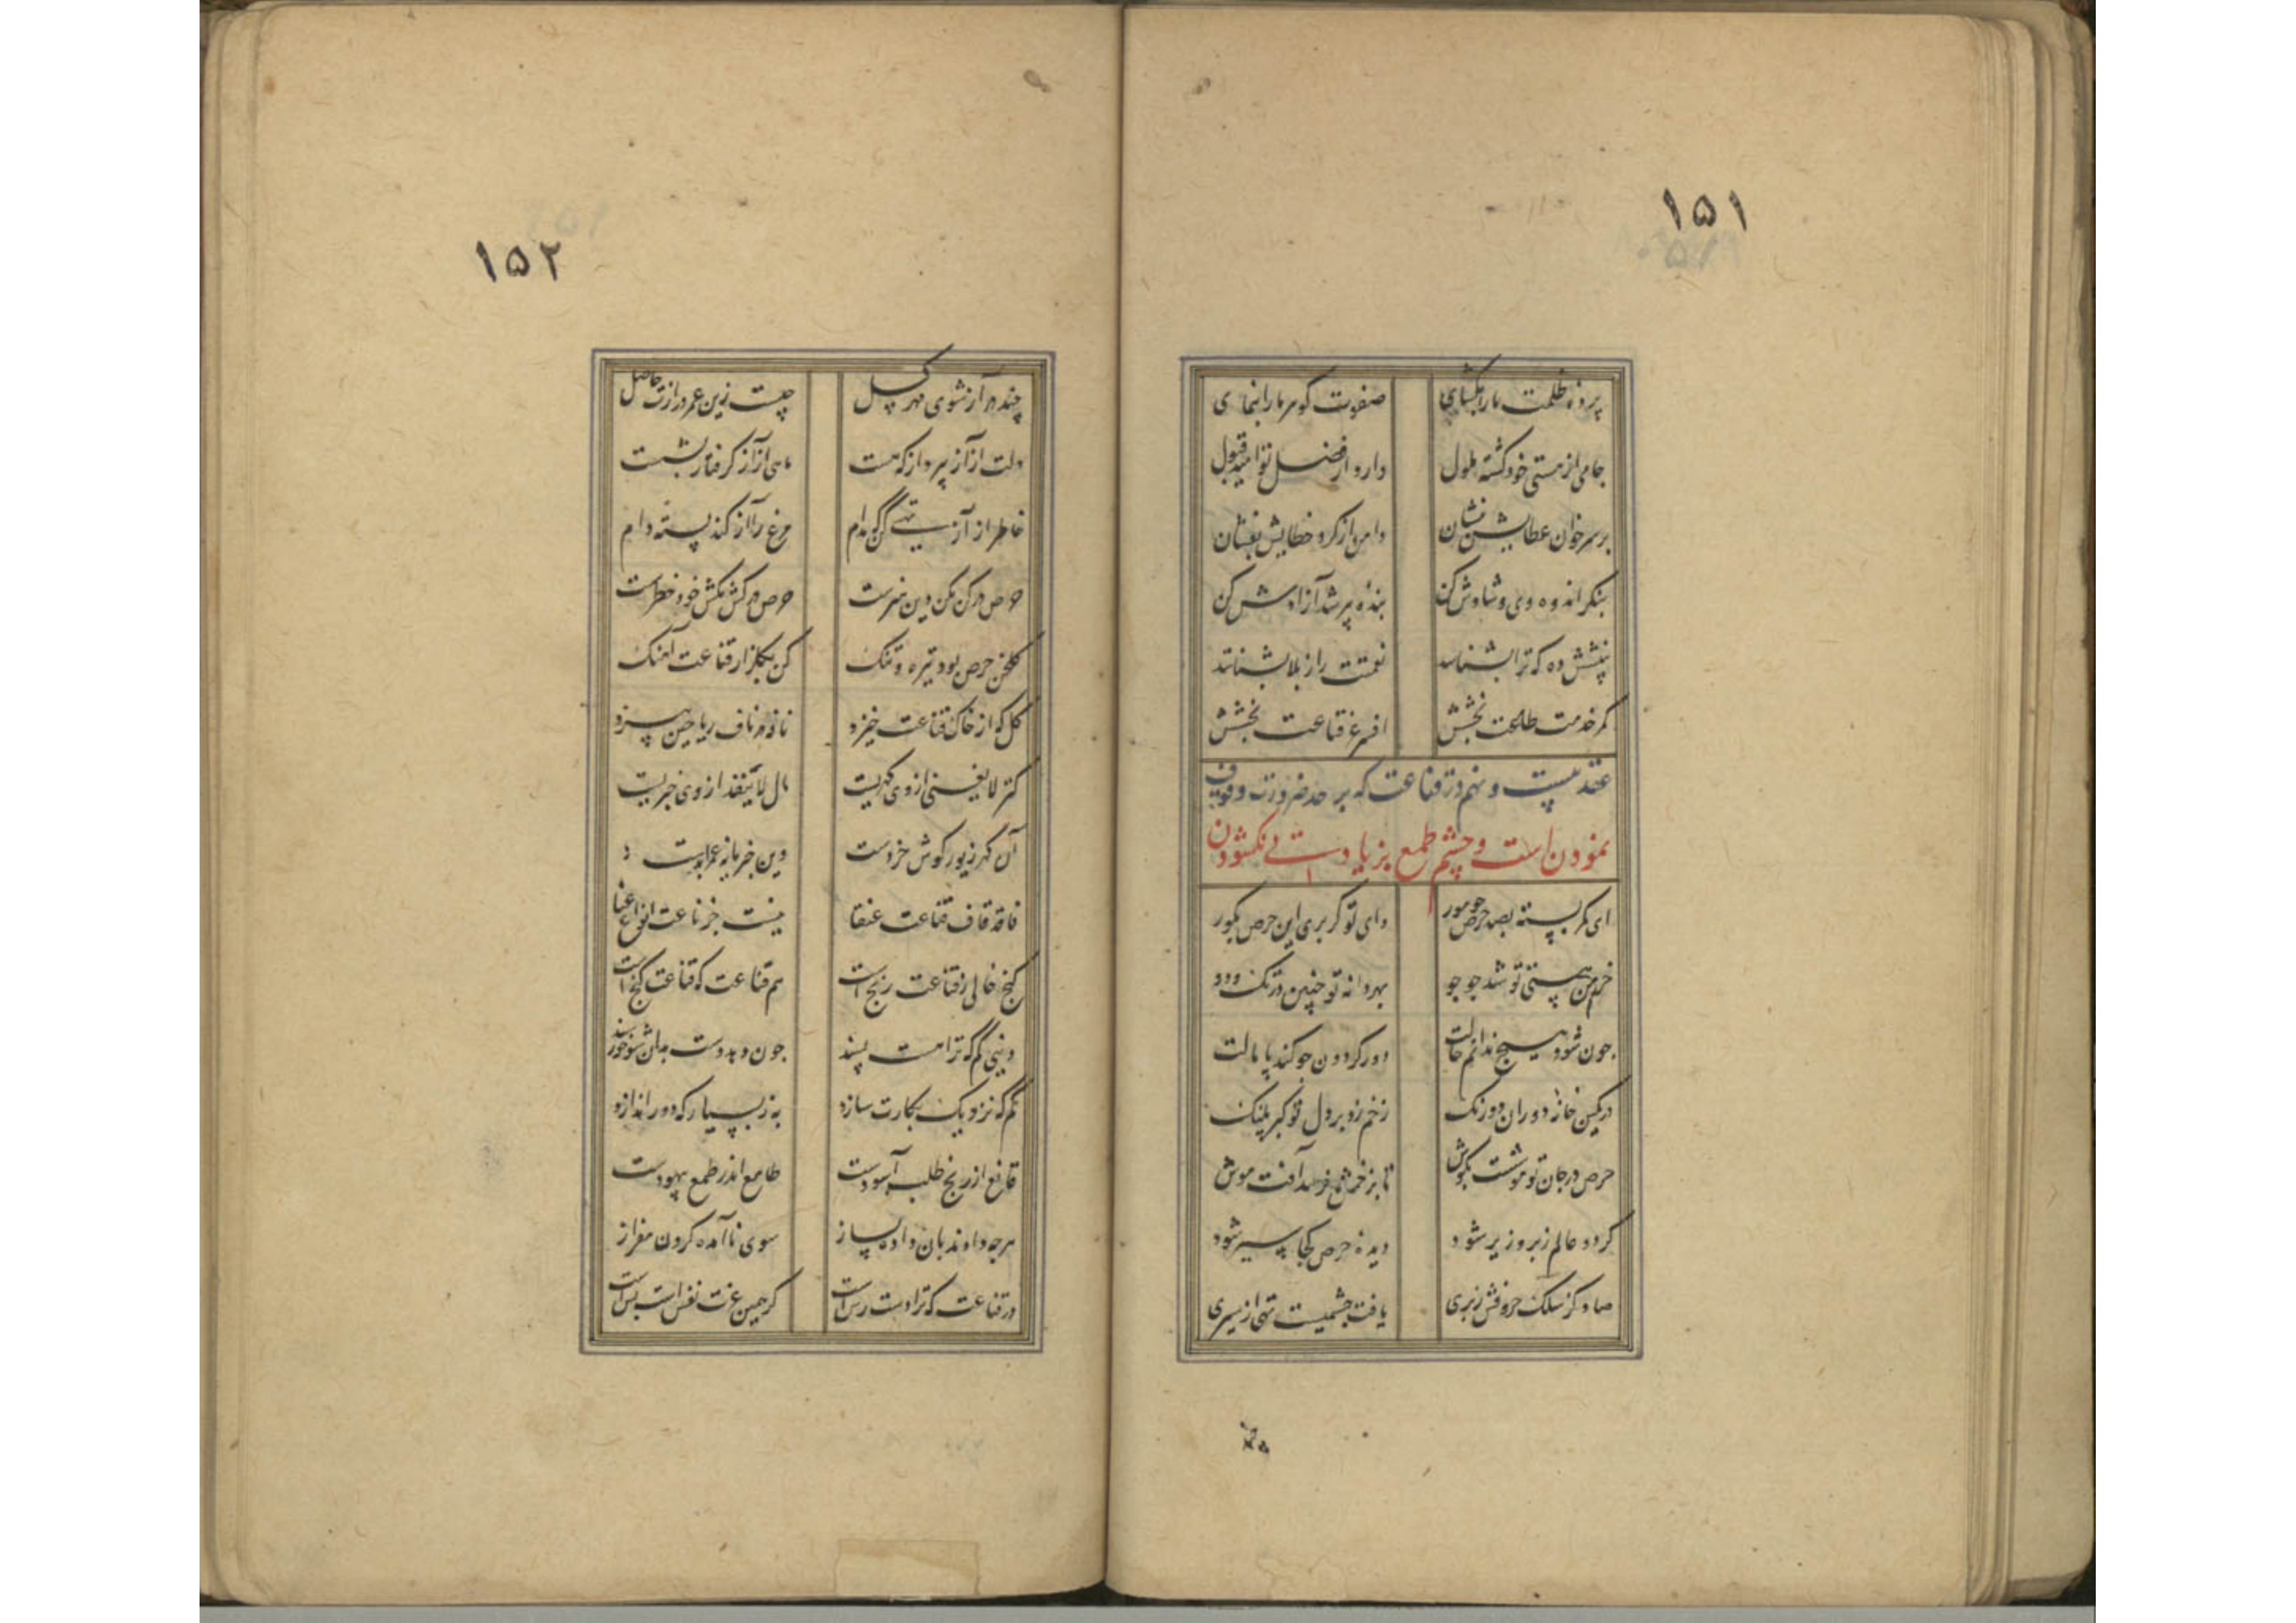 ۱۵۱
پردهٔ ظلمت ما را بگشای صفوت گوهر ما را بنمای
جامی از هستی خود گشته ملول دارد از فضل تو امید قبول
بر سر خوان عطایش بنشان دامن از گرد خطایش بفشان
بنگر اندوه وی و شادش کن بنده پیر شد آزادش کن
بینشش ده که ترا بشناسد نعمتت را ز بلا بشناسد
کمر خدمت طاعت بخشش افسر عز قناعت بخشش
عقد بیست و نهم در قناعت که بر حد ضرورت وقوف
نمودن است و چشم طمع بزیادتی نگشودن
ای کمر بسته بصد حرص چو مور وای تو گر بری این حرص بگور
خرمن هستی تو شد جو جو بهر دانه تو چنین در تک و دو
چون شود هیچ ندانم حالت دور گردون چو کند پامالت
در کمین خانهٔ دوران دو رنگ زخم زد بر دل تو کبر پلنگ
حرص در جان تو موشت بکوش تا بزخمش نرسد آفت موش
گردد عالم زبر و زیر شود دیدهٔ حرص کجا سیر شود
صاد کز سلک حروفش زبری یافت چشمیست تهی از سیری
۱۵۲
چند در آز شوی مهر گسل چیست زین عمر درازت حاصل
دلت از آز بپرداز که هست ماهی از آز گرفتار بشست
خاطر از آز تهی کن مدام مرغ را آز کند بستهٔ دام
حرص در کن مکن دین ضررست حرص در کش مکش خود خطرست
گلخن حرص بود تیره و تنگ کن بگلزار قناعت آهنگ
گل که از خاک قناعت خیزد نافه در ناف ریاحین بیزد
کنز لا یفنی از وی گهریست مال لا ینفد از وی خبریست
آن گهر زیور گوش خردست وین خبر مایهٔ عمر ابدست
قاف تا قاف قناعت عنقا نیست جز قناعت انواع غنا
کنج خالی ز قناعت رنج است هم قناعت که قناعت گنج است
دنیی کم که ترا هست پسند چون دهد دست بدان شو خورسند
کم که نزدیک بکارت سازد به ز بسیار که دور اندازد
قانع از رنج طلب آسودست طامع اندر طمع بیهودست
هر چه دادند بآن داده بساز سوی نا آمده گردن مفراز
در قناعت که ترا دست رس است گر همین عزت نفس است بس است